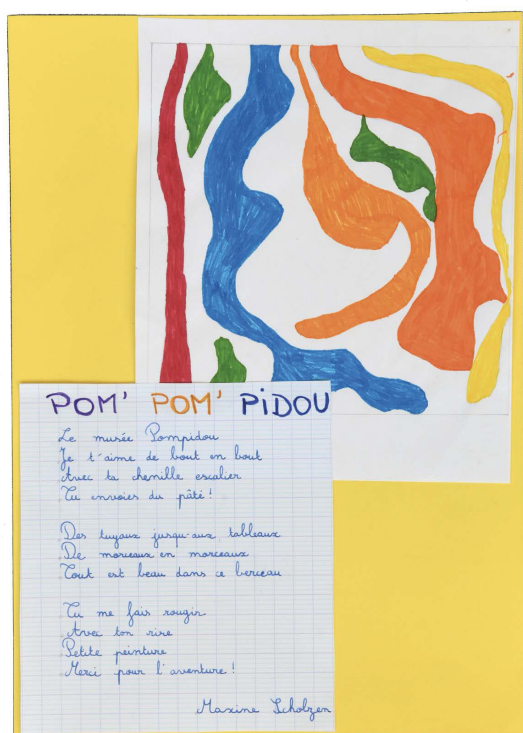 POM' POM' PiDOU
Le musée Pompidou
Je t'aime de bout en bout
Avec ta chenille escalier
Tu envoies du pâté !
Des tuyaux jusqu'aux tableaux
De morceaux en morceaux
Tout est beau dans ce berceau
Tu me fais rougir
Avec ton rire
Petite peinture
Merci pour l'aventure !
Maxine Scholzen